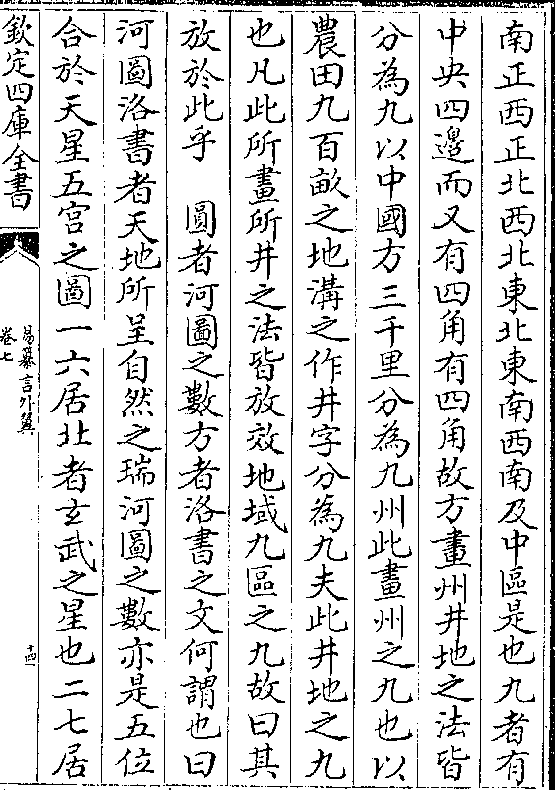 南正西正北西北東北東南西南及中區是也九者有
中央四邊而又有四角有四角故方畫州井地之法皆
分為九以中國方三千里分為九州此畫州之九也以
農田九百畝之地溝之作井字分為九夫此井地之九
也凡此所畫所井之法皆放效地域九區之九故曰其
放於此乎　圓者河圖之數方者洛書之文何謂也曰
河圖洛書者天地所呈自然之瑞河圖之數亦是五位
合於天星五宮之圖一六居北者玄武之星也二七居
欽定四庫全書
易纂言外翼
卷七
十四